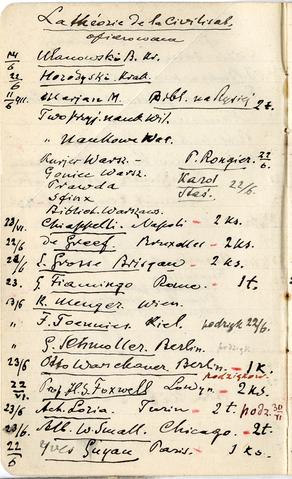 La théorie de la Civilisat.
ofiarowana
14/6 Ulanowski B. Kr.
22/6 Horodyski. Krak.
11/6 911. Marjan M. Bibl. na Rysiej 2t.
Tow. Przyj. nauk Wil.
" Naukowe War.
Kurjer Warsz. - P. Rongier. 22/6
Goniec Warsz. Karol 22/6
Prawda Staś.
Sfinx
Bibliot. Warszaws.
23/VI. Chiappelli. Napoli - 2 ks.
22/6 De Greef. Bruxelles - 2 ks.
22/6 E. Grosse Brisgau - 2 ks.
23. G. Fiamingo Rome. - 1t.
23/6 K. Menger. Wien.
" F. Toennies Kiel. podzięk 22/6.
" G. Schmoller. Berlin. podzięk
23/6 Otto Warschauer. Berlin. - 1 k.
podziękow
22/VI. Prof. H. S. Foxwell Londyn - 2 ks.
23/6 Ach. Loria. Turin - 2t. podz. 30/VI
23/6 Alb. W. Small. Chicago. - 2t.
22/6 Yves Guyau Paris. - 1 ks.